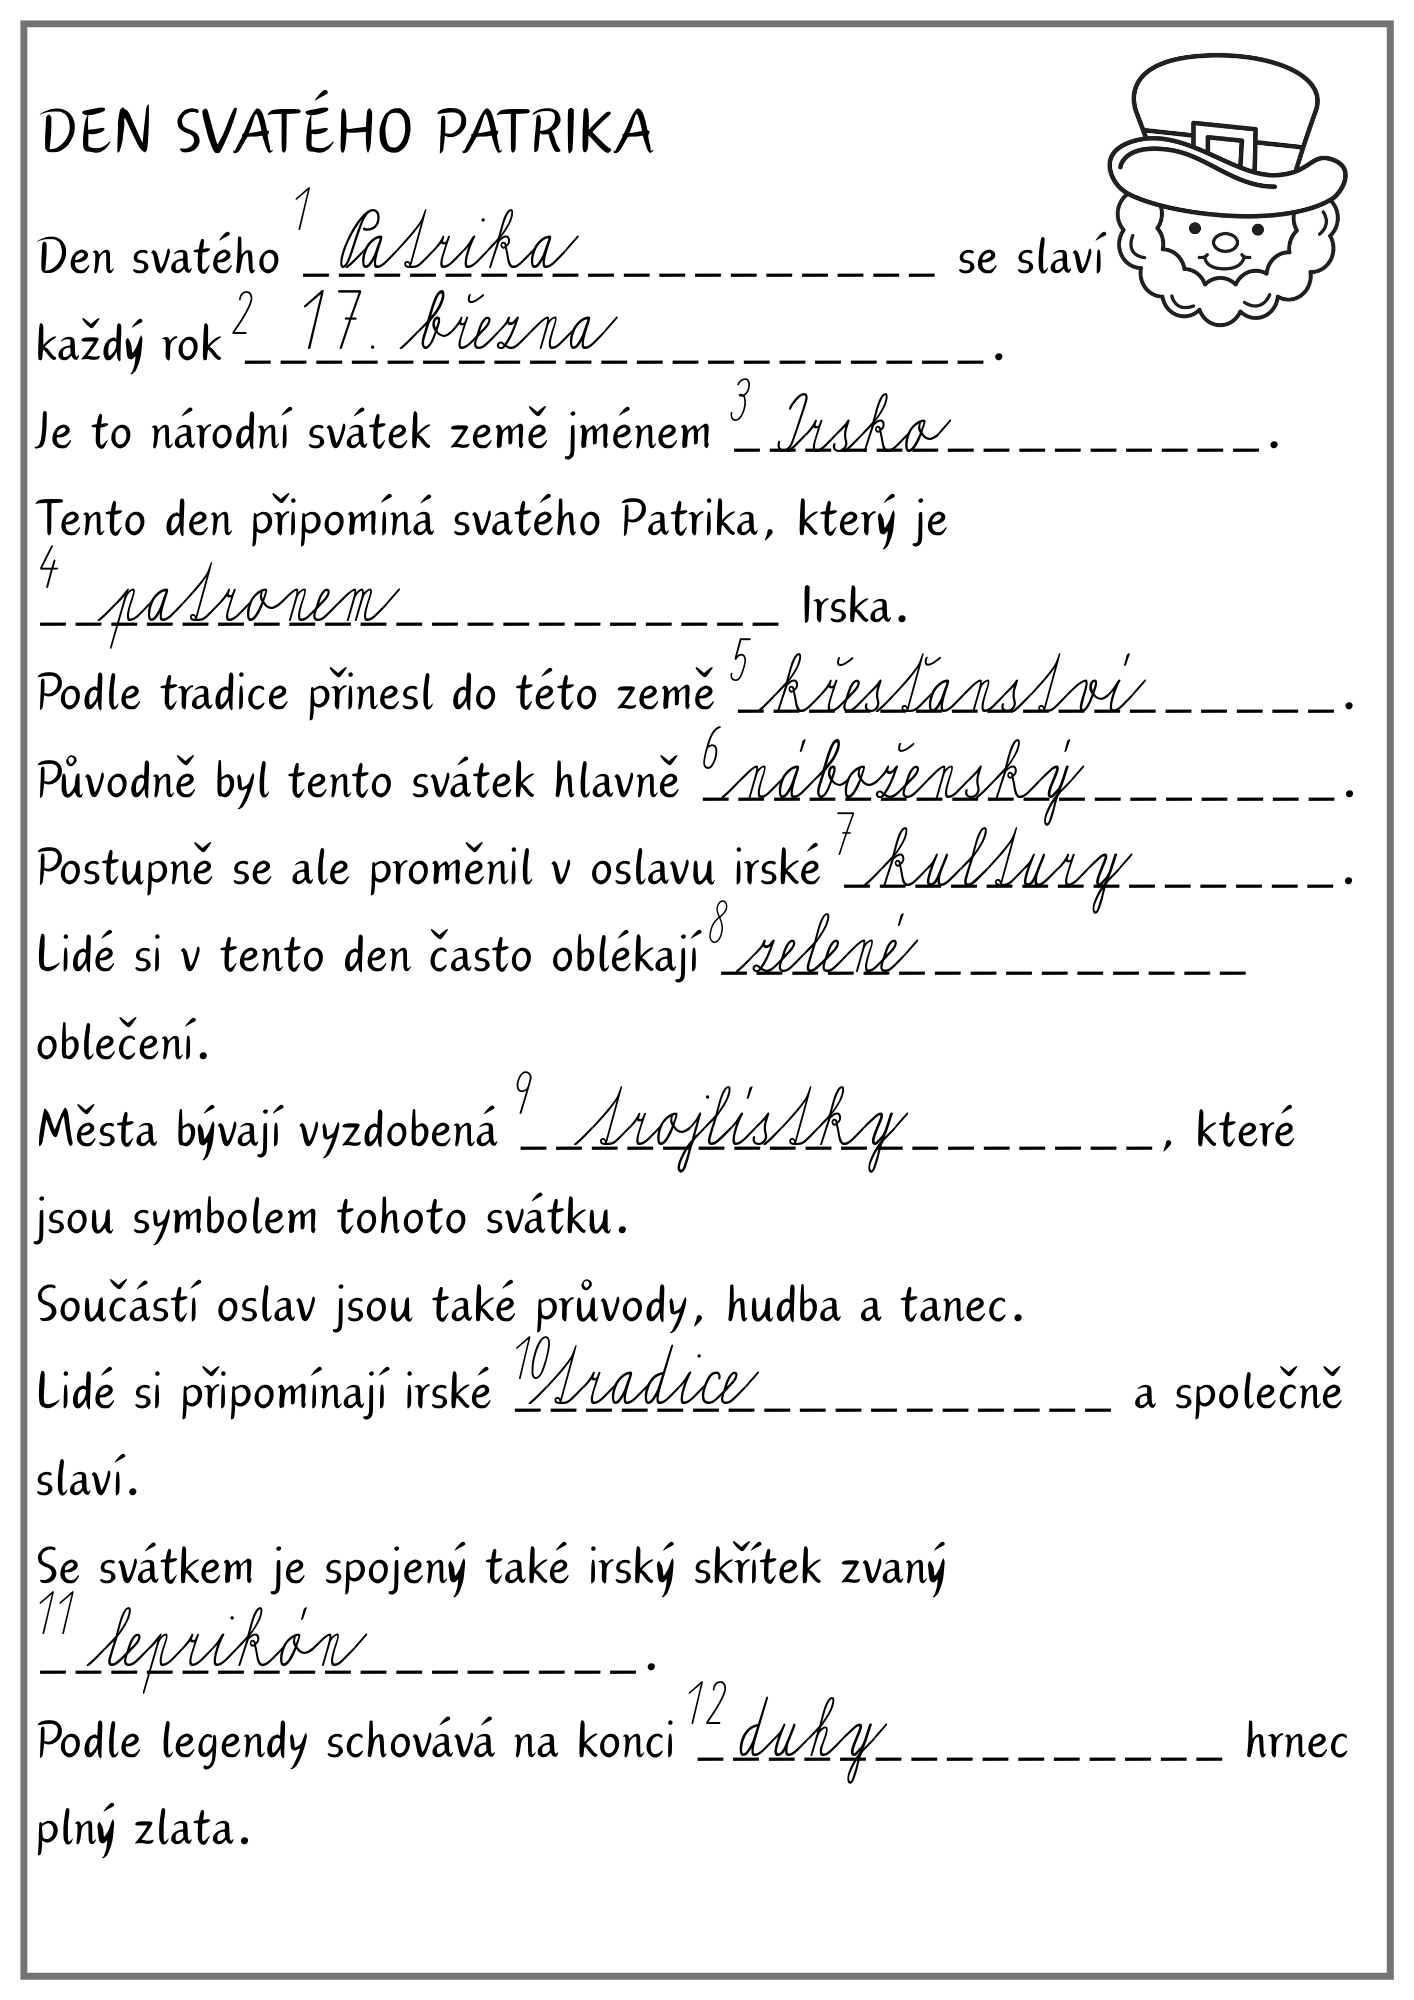 DEN SVATÉHO PATRIKA
Den svatého 1 Patrika se slaví
každý rok 2 17. března.
Je to národní svátek země jménem 3 Irsko.
Tento den připomíná svatého Patrika, který je
4 patronem Irska.
Podle tradice přinesl do této země 5 křesťanství.
Původně byl tento svátek hlavně 6 náboženský.
Postupně se ale proměnil v oslavu irské 7 kultury.
Lidé si v tento den často oblékají 8 zelené
oblečení.
Města bývají vyzdobená 9 trojlístky, které
jsou symbolem tohoto svátku.
Součástí oslav jsou také průvody, hudba a tanec.
Lidé si připomínají irské 10 tradice a společně
slaví.
Se svátkem je spojený také irský skřítek zvaný
11 leprikón.
Podle legendy schovává na konci 12 duhy hrnec
plný zlata.